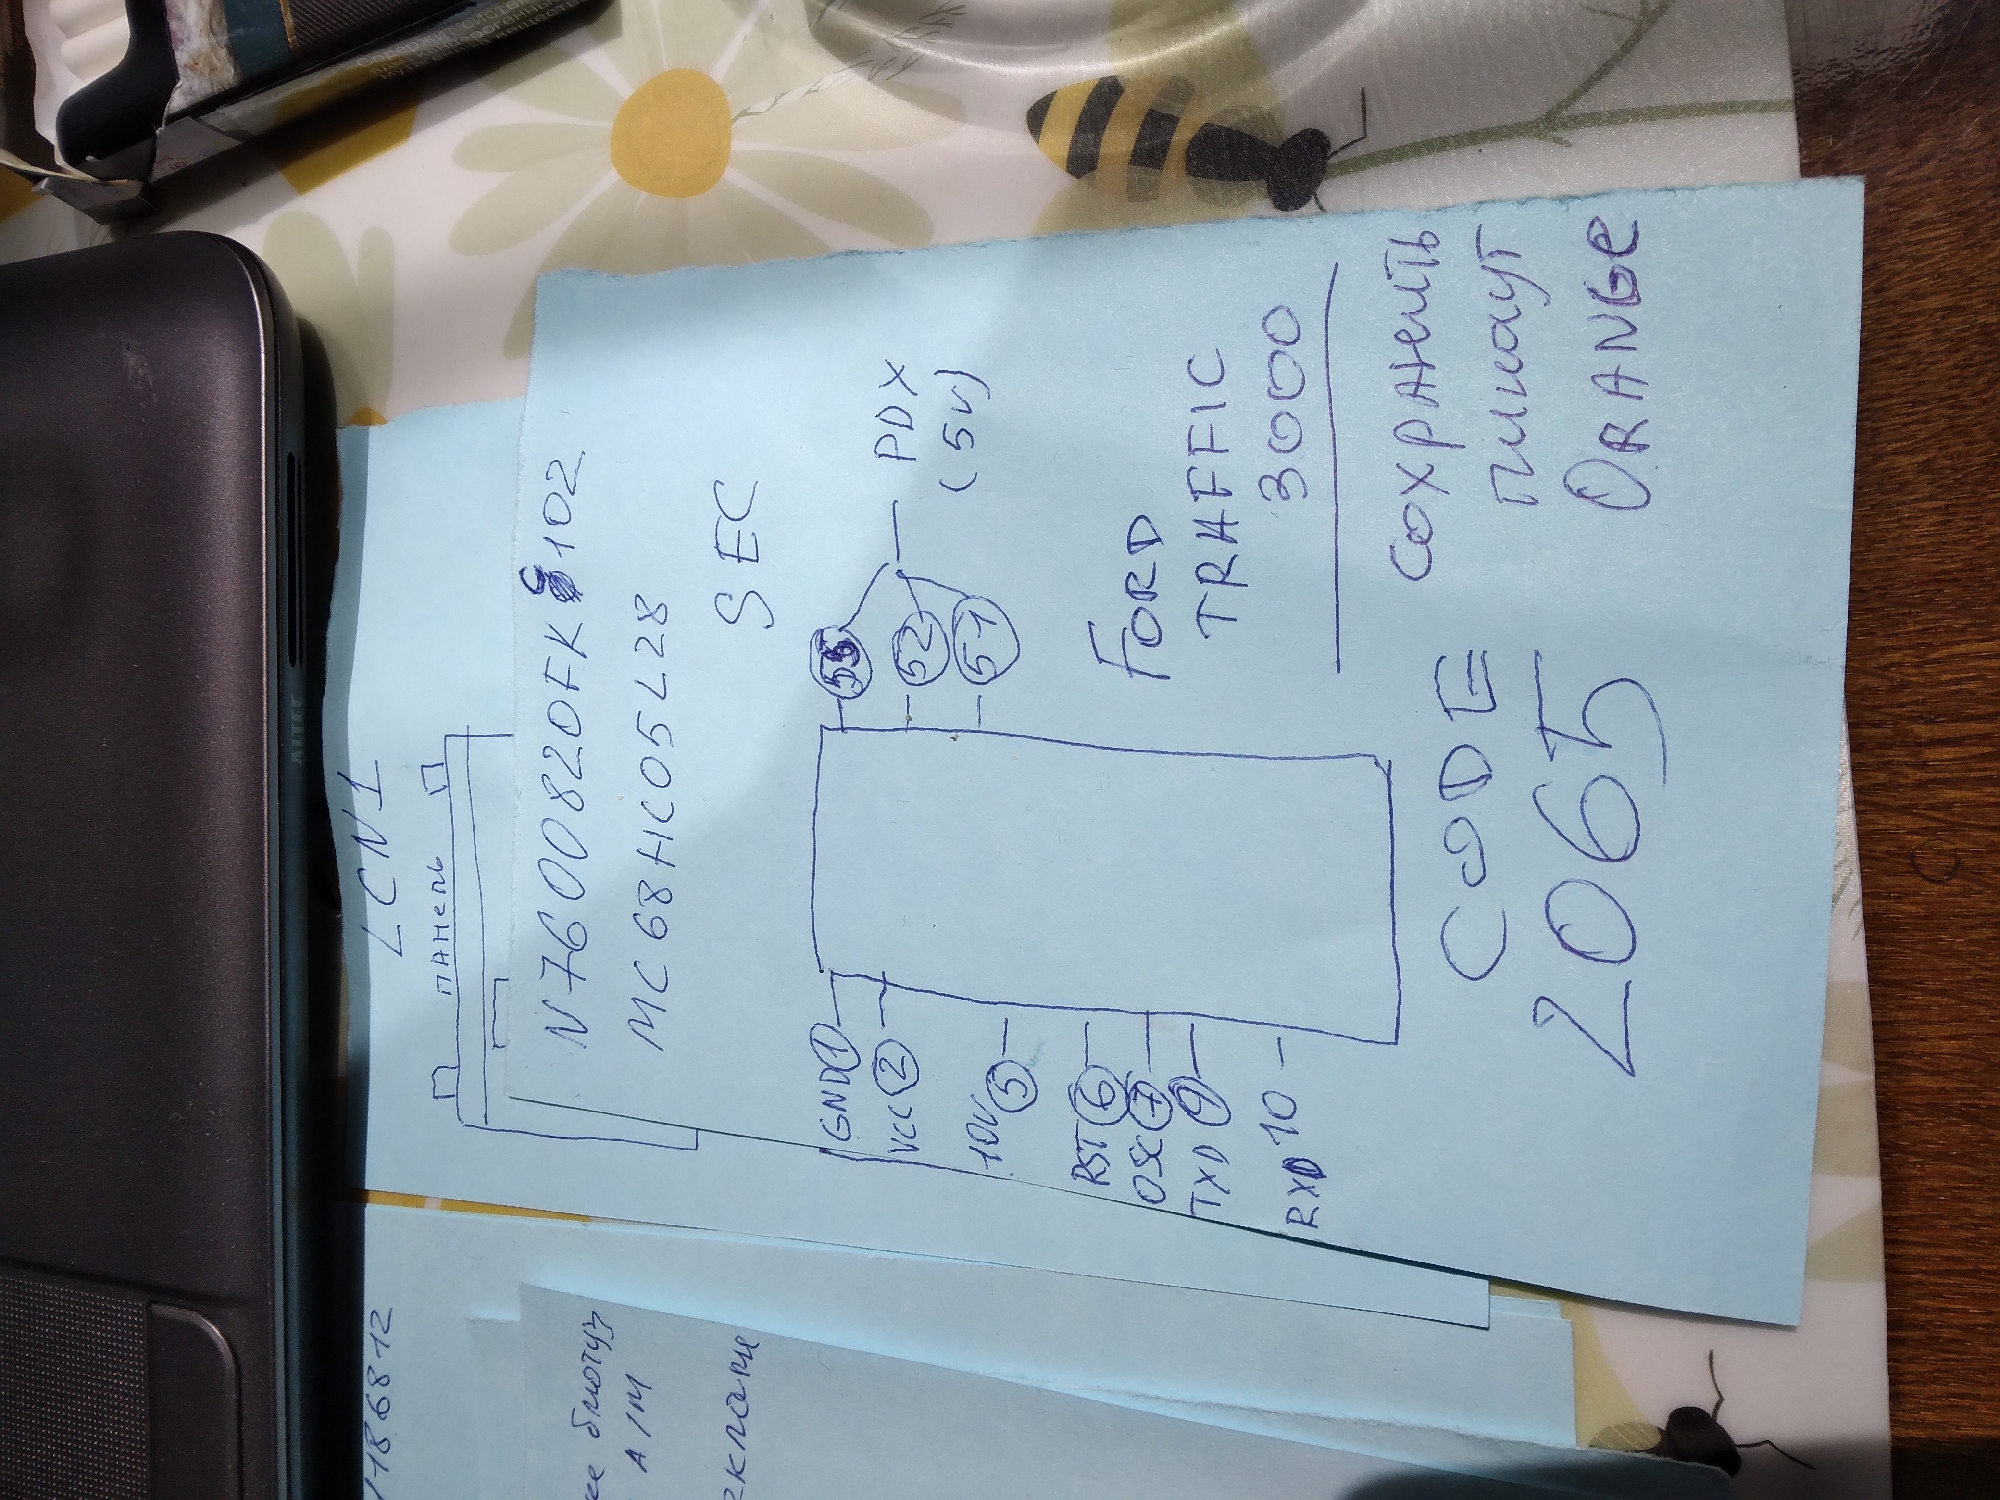 LCN1
ПАНЕЛЬ
N7600820FKC102
MC68HC05L28
SEC
GND 1
VCC 2
10V 5
RST 6
OSC 7
TXD 9
RXD 10
53
52
51
PDX
(5V)
FORD
TRAFFIC
3000
CODE
2065
СОХРАНИТЬ
пинаут
ORANGE
A/M